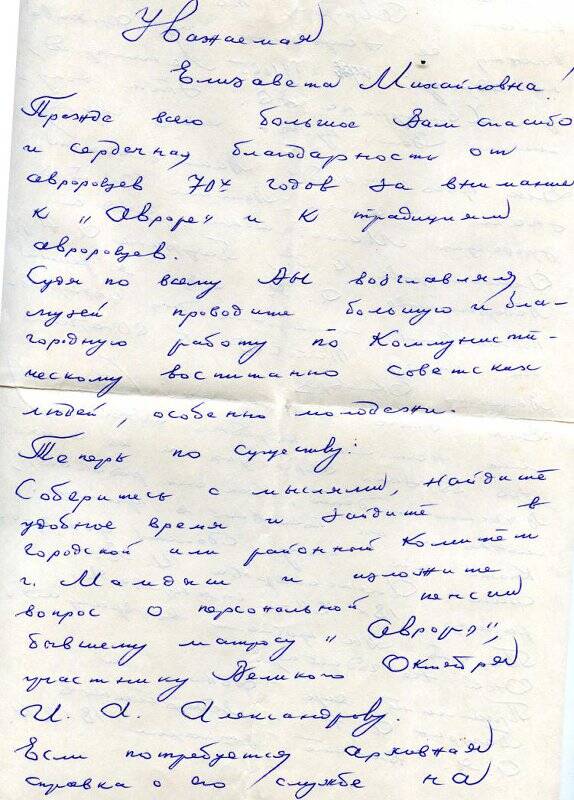 Уважаемая
Елизавета Михайловна!
Прежде всего большое Вам спасибо
и сердечная благодарность от
авроровцев 70х годов за внимание
к „Авроре" и к традициям
авроровцев.
Судя по всему Вы возглавляя
музей проводите большую и бла-
городную работу по Коммунисти-
ческому воспитанию советских
людей, особенно молодежи.
Теперь по существу:
Соберитесь с мыслями, найдите
удобное время и зайдите в
городской или районный Комитет
г. Мамадыш и изложите
вопрос о персональной пенсии
бывшему матросу „Аврора",
участнику Великого Октября
И. А. Александрову.
Если потребуется архивная
справка о его службе на